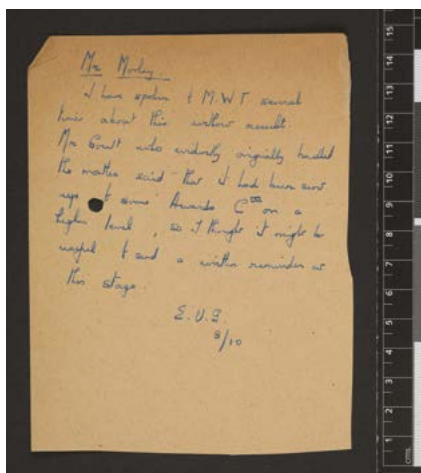 Mr Morley
I have spoken to M.W.T. several
times about this without result.
Mr Gowlt who evidently originally handled
the matter said that it had been sent
up to some Awards Ctee on a
higher level, so I thought it might be
useful to send a written reminder at
this stage.
E.V.G.
8/10
15
14
13
12
11
10
9
8
7
6
5
4
3
2
1
CMS